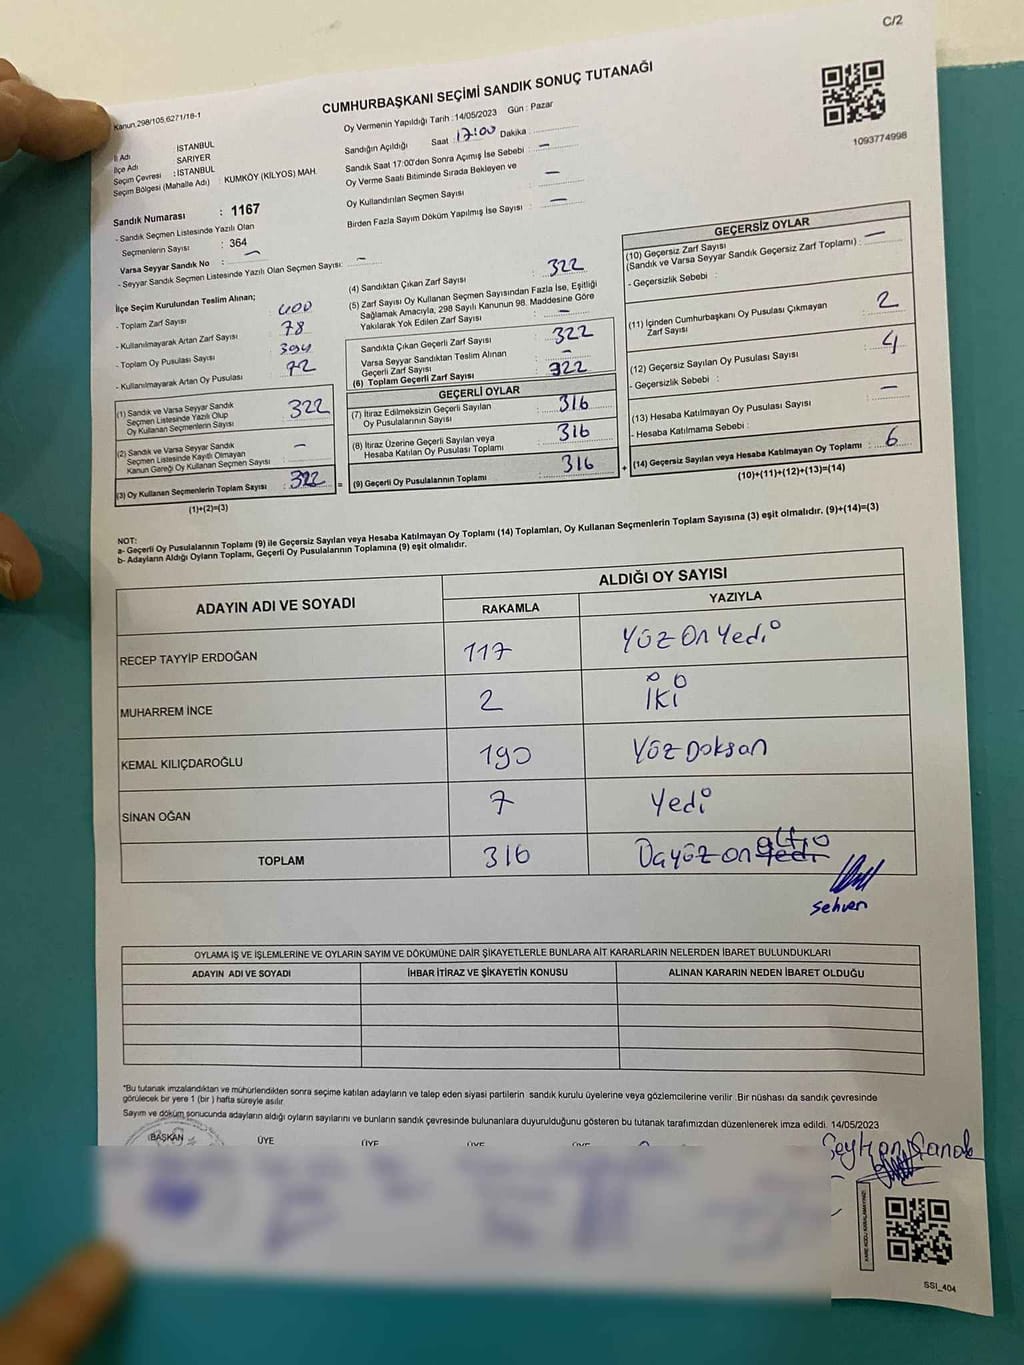 C/2
Kanun,298/105,6271/18-1
CUMHURBAŞKANI SEÇİMİ SANDIK SONUÇ TUTANAĞI
1093774998
İl Adı : İSTANBUL
İlçe Adı : SARIYER
Seçim Çevresi : İSTANBUL
Seçim Bölgesi (Mahalle Adı) : KUMKÖY (KİLYOS) MAH.
Sandık Numarası : 1167
- Sandık Seçmen Listesinde Yazılı Olan
Seçmenlerin Sayısı : 364
Varsa Seyyar Sandık No : —
- Seyyar Sandık Seçmen Listesinde Yazılı Olan Seçmen Sayısı: —
Oy Vermenin Yapıldığı Tarih : 14/05/2023 Gün : Pazar
Sandığın Açıldığı Saat : 17:00 Dakika :
Sandık Saat 17:00'den Sonra Açımış İse Sebebi : —
Oy Verme Saati Bitiminde Sırada Bekleyen ve
Oy Kullandırılan Seçmen Sayısı : —
Birden Fazla Sayım Döküm Yapılmış İse Sayısı : —
İlçe Seçim Kurulundan Teslim Alınan;
- Toplam Zarf Sayısı : 400
- Kullanılmayarak Artan Zarf Sayısı : 78
- Toplam Oy Pusulası Sayısı : 394
- Kullanılmayarak Artan Oy Pusulası : 72
(1) Sandık ve Varsa Seyyar Sandık
Seçmen Listesinde Yazılı Olup
Oy Kullanan Seçmenlerin Sayısı : 322
(2) Sandık ve Varsa Seyyar Sandık
Seçmen Listesinde Kayıtlı Olmayan
Kanun Gereği Oy Kullanan Seçmen Sayısı : —
(3) Oy Kullanan Seçmenlerin Toplam Sayısı : 322
(1)+(2)=(3)
=
(4) Sandıktan Çıkan Zarf Sayısı : 322
(5) Zarf Sayısı Oy Kullanan Seçmen Sayısından Fazla İse, Eşitliği
Sağlamak Amacıyla, 298 Sayılı Kanunun 98. Maddesine Göre
Yakılarak Yok Edilen Zarf Sayısı : —
Sandıkta Çıkan Geçerli Zarf Sayısı : 322
Varsa Seyyar Sandıktan Teslim Alınan
Geçerli Zarf Sayısı : —
(6) Toplam Geçerli Zarf Sayısı : 322
GEÇERLİ OYLAR
(7) İtiraz Edilmeksizin Geçerli Sayılan
Oy Pusulalarının Sayısı : 316
(8) İtiraz Üzerine Geçerli Sayılan veya
Hesaba Katılan Oy Pusulası Toplamı : 316
(9) Geçerli Oy Pusulalarının Toplamı : 316
+
GEÇERSİZ OYLAR
(10) Geçersiz Zarf Sayısı
(Sandık ve Varsa Seyyar Sandık Geçersiz Zarf Toplamı) : —
- Geçersizlik Sebebi :
(11) İçinden Cumhurbaşkanı Oy Pusulası Çıkmayan
Zarf Sayısı : 2
(12) Geçersiz Sayılan Oy Pusulası Sayısı : 4
- Geçersizlik Sebebi :
(13) Hesaba Katılmayan Oy Pusulası Sayısı : —
- Hesaba Katılmama Sebebi :
(14) Geçersiz Sayılan veya Hesaba Katılmayan Oy Toplamı : 6
(10)+(11)+(12)+(13)=(14)
NOT:
a- Geçerli Oy Pusulalarının Toplamı (9) ile Geçersiz Sayılan veya Hesaba Katılmayan Oy Toplamı (14) Toplamları, Oy Kullanan Seçmenlerin Toplam Sayısına (3) eşit olmalıdır. (9)+(14)=(3)
b- Adayların Aldığı Oyların Toplamı, Geçerli Oy Pusulalarının Toplamına (9) eşit olmalıdır.
ADAYIN ADI VE SOYADI
ALDIĞI OY SAYISI
RAKAMLA YAZIYLA
RECEP TAYYİP ERDOĞAN 117 Yüz On Yedi
MUHARREM İNCE 2 İKİ
KEMAL KILIÇDAROĞLU 190 Yüz Doksan
SİNAN OĞAN 7 Yedi
TOPLAM 316 Üçyüz on yedi altı
sehven
OYLAMA İŞ VE İŞLEMLERİNE VE OYLARIN SAYIM VE DÖKÜMÜNE DAİR ŞİKAYETLERLE BUNLARA AİT KARARLARIN NELERDEN İBARET BULUNDUKLARI
ADAYIN ADI VE SOYADI İHBAR İTİRAZ VE ŞİKAYETİN KONUSU ALINAN KARARIN NEDEN İBARET OLDUĞU
"Bu tutanak imzalandıktan ve mühürlendikten sonra seçime katılan adayların ve talep eden siyasi partilerin sandık kurulu üyelerine veya gözlemcilerine verilir .Bir nüshası da sandık çevresinde
görülecek bir yere 1 (bir ) hafta süreyle asılır
Sayım ve döküm sonucunda adayların aldığı oyların sayılarını ve bunların sandık çevresinde bulunanlara duyurulduğunu gösteren bu tutanak tarafımızdan düzenlenerek imza edildi. 14/05/2023
BAŞKAN ÜYE ÜYE ÜYE
SSI_404